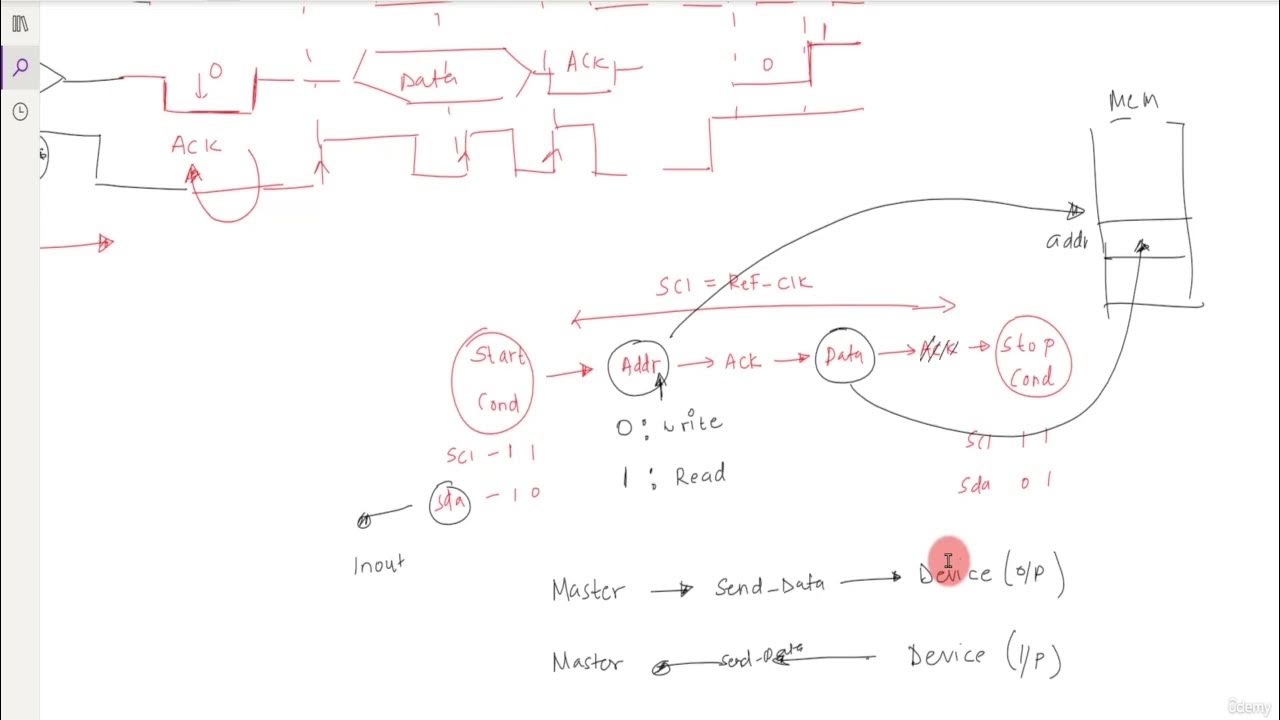 0
Data
ACK
0
1
ACK
Mem
addr
SCl = Ref-Clk
Start
Cond
Addr
ACK
Data
Ack
Stop
Cond
0 : write
1 : Read
SCl - 1 1
Sda - 1 0
SCl 1 1
Sda 0 1
Inout
Master Send-Data Device (O/P)
Master Send-Data Device (I/P)
ûdemy